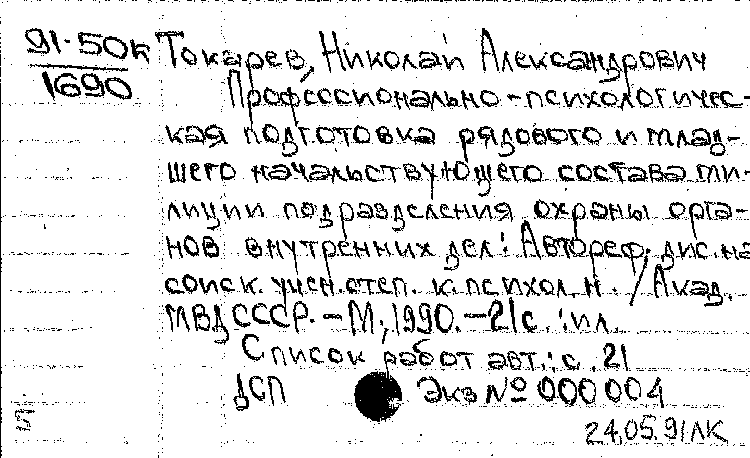 91-50к Токарев, Николай Александрович
1690
Профессионально-психологичес-
кая подготовка рядового и млад-
шего начальствующего состава ми-
лиции подразделения охраны орга-
нов внутренних дел: Автореф. дис. на
соиск. учен. степ. к. психол. н. / Акад.
МВД СССР. - М., 1990. - 21 с. : ил.
Список работ авт.: с. 21
ДСП Экз № 000004
5
24.05.91 ЛК